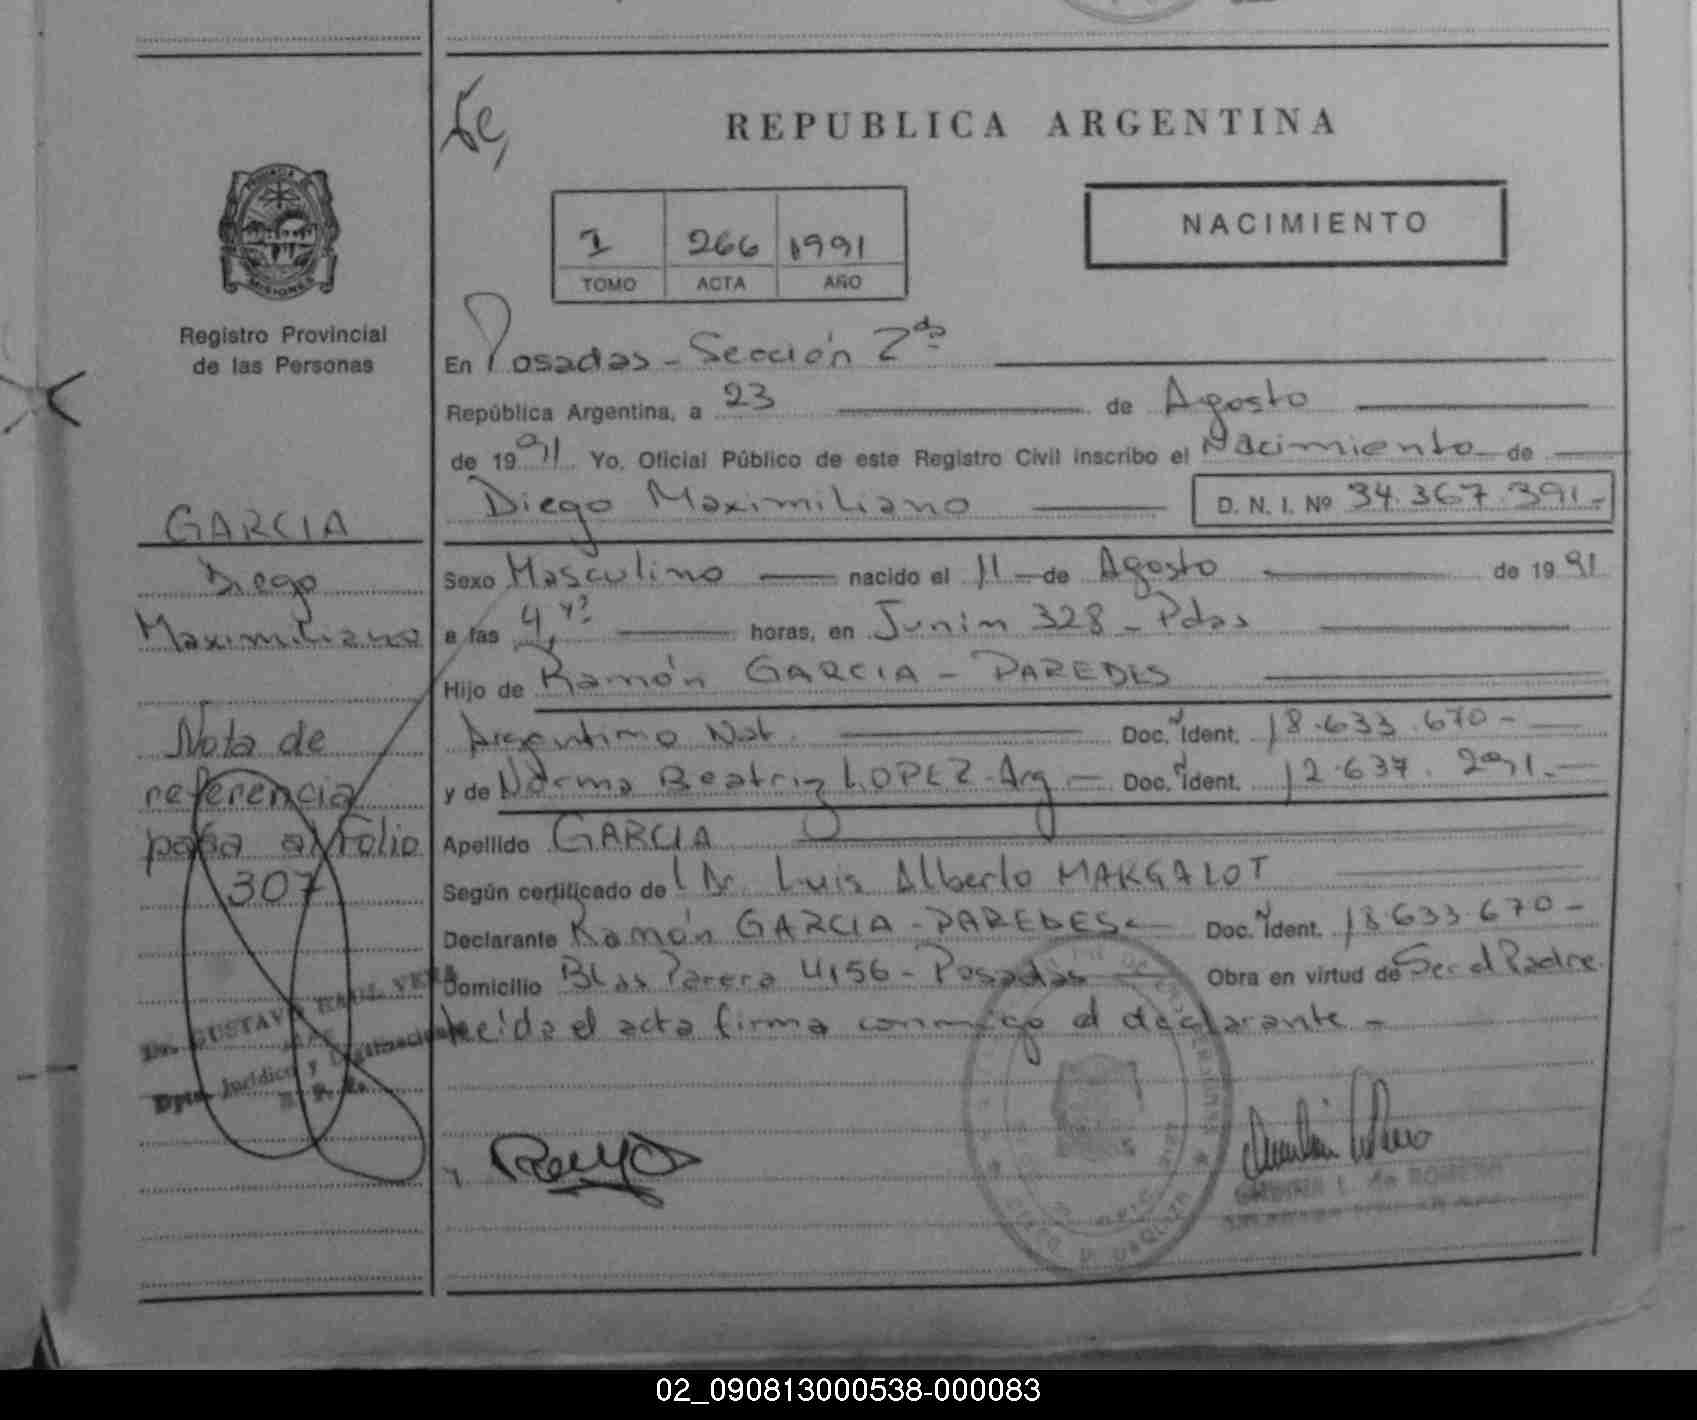 REPUBLICA ARGENTINA
NACIMIENTO
1 266 1991
TOMO ACTA AÑO
PROVINCIA
MISIONES
Registro Provincial
de las Personas
En Posadas - Sección 2da
República Argentina, a 23 de Agosto
de 1991 Yo, Oficial Público de este Registro Civil inscribo el Nacimiento de
Diego Maximiliano D. N. I. Nº 34.367.391.-
GARCIA
Diego
Maximiliano
Sexo Masculino nacido el 11 de Agosto de 1991
a las 4, horas, en Junin 328 - Pdas
Hijo de Ramón GARCIA - PAREDES
Argentino Nat. Doc. Ident. 18.633.670 -
y de Norma Beatriz LOPEZ - Arg - Doc. Ident. 12.637.291.-
Apellido GARCIA
Según certificado del Dr. Luis Alberto MARGALOT
Declarante Ramón GARCIA - PAREDES Doc. Ident. 18.633.670 -
Domicilio Blas Parera 4156 - Posadas Obra en virtud de Ser el Padre.
Leida el acta firma conmigo el declarante -
Nota de
referencia
pasa al Folio
307
Dr. GUSTAVO RAUL VERA
Dpto. Jurídico y
L. de ROMERO
02_090813000538-000083